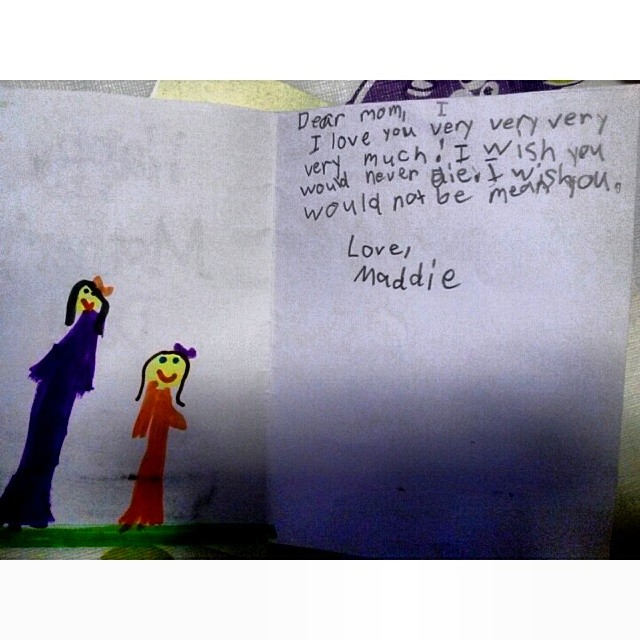 Dear mom, I
I love you very very very
very much! I wish you
would never die. I wish you.
would not be mean
Love,
Maddie